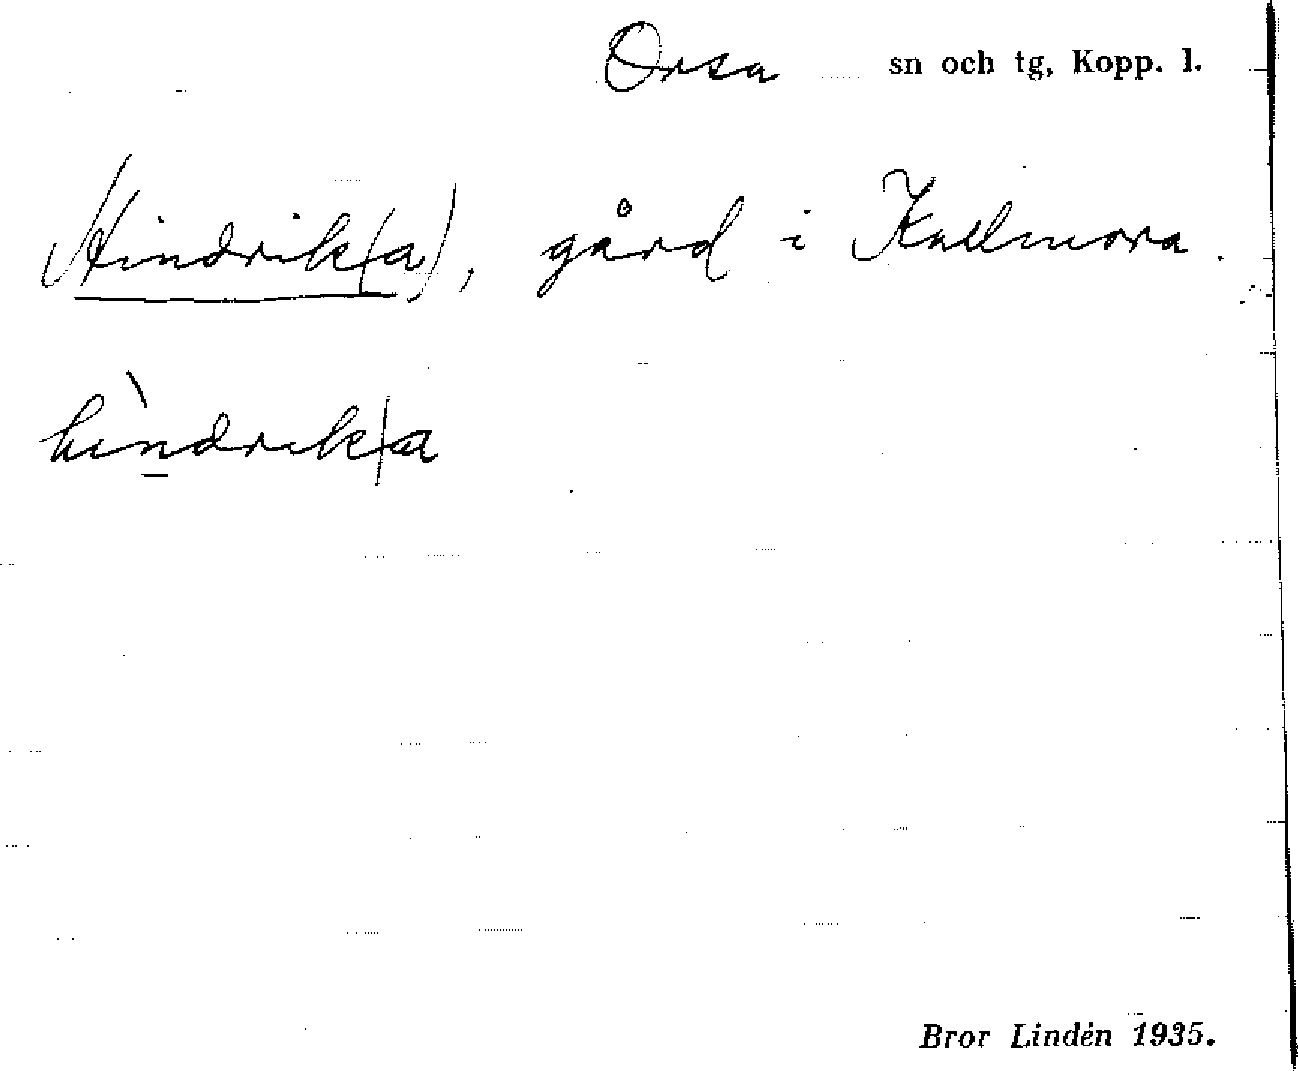 Orsa sn och tg, Kopp. l.
Hindrik(a), gård i Kallmora.
hìndrik/a
Bror Lindén 1935.